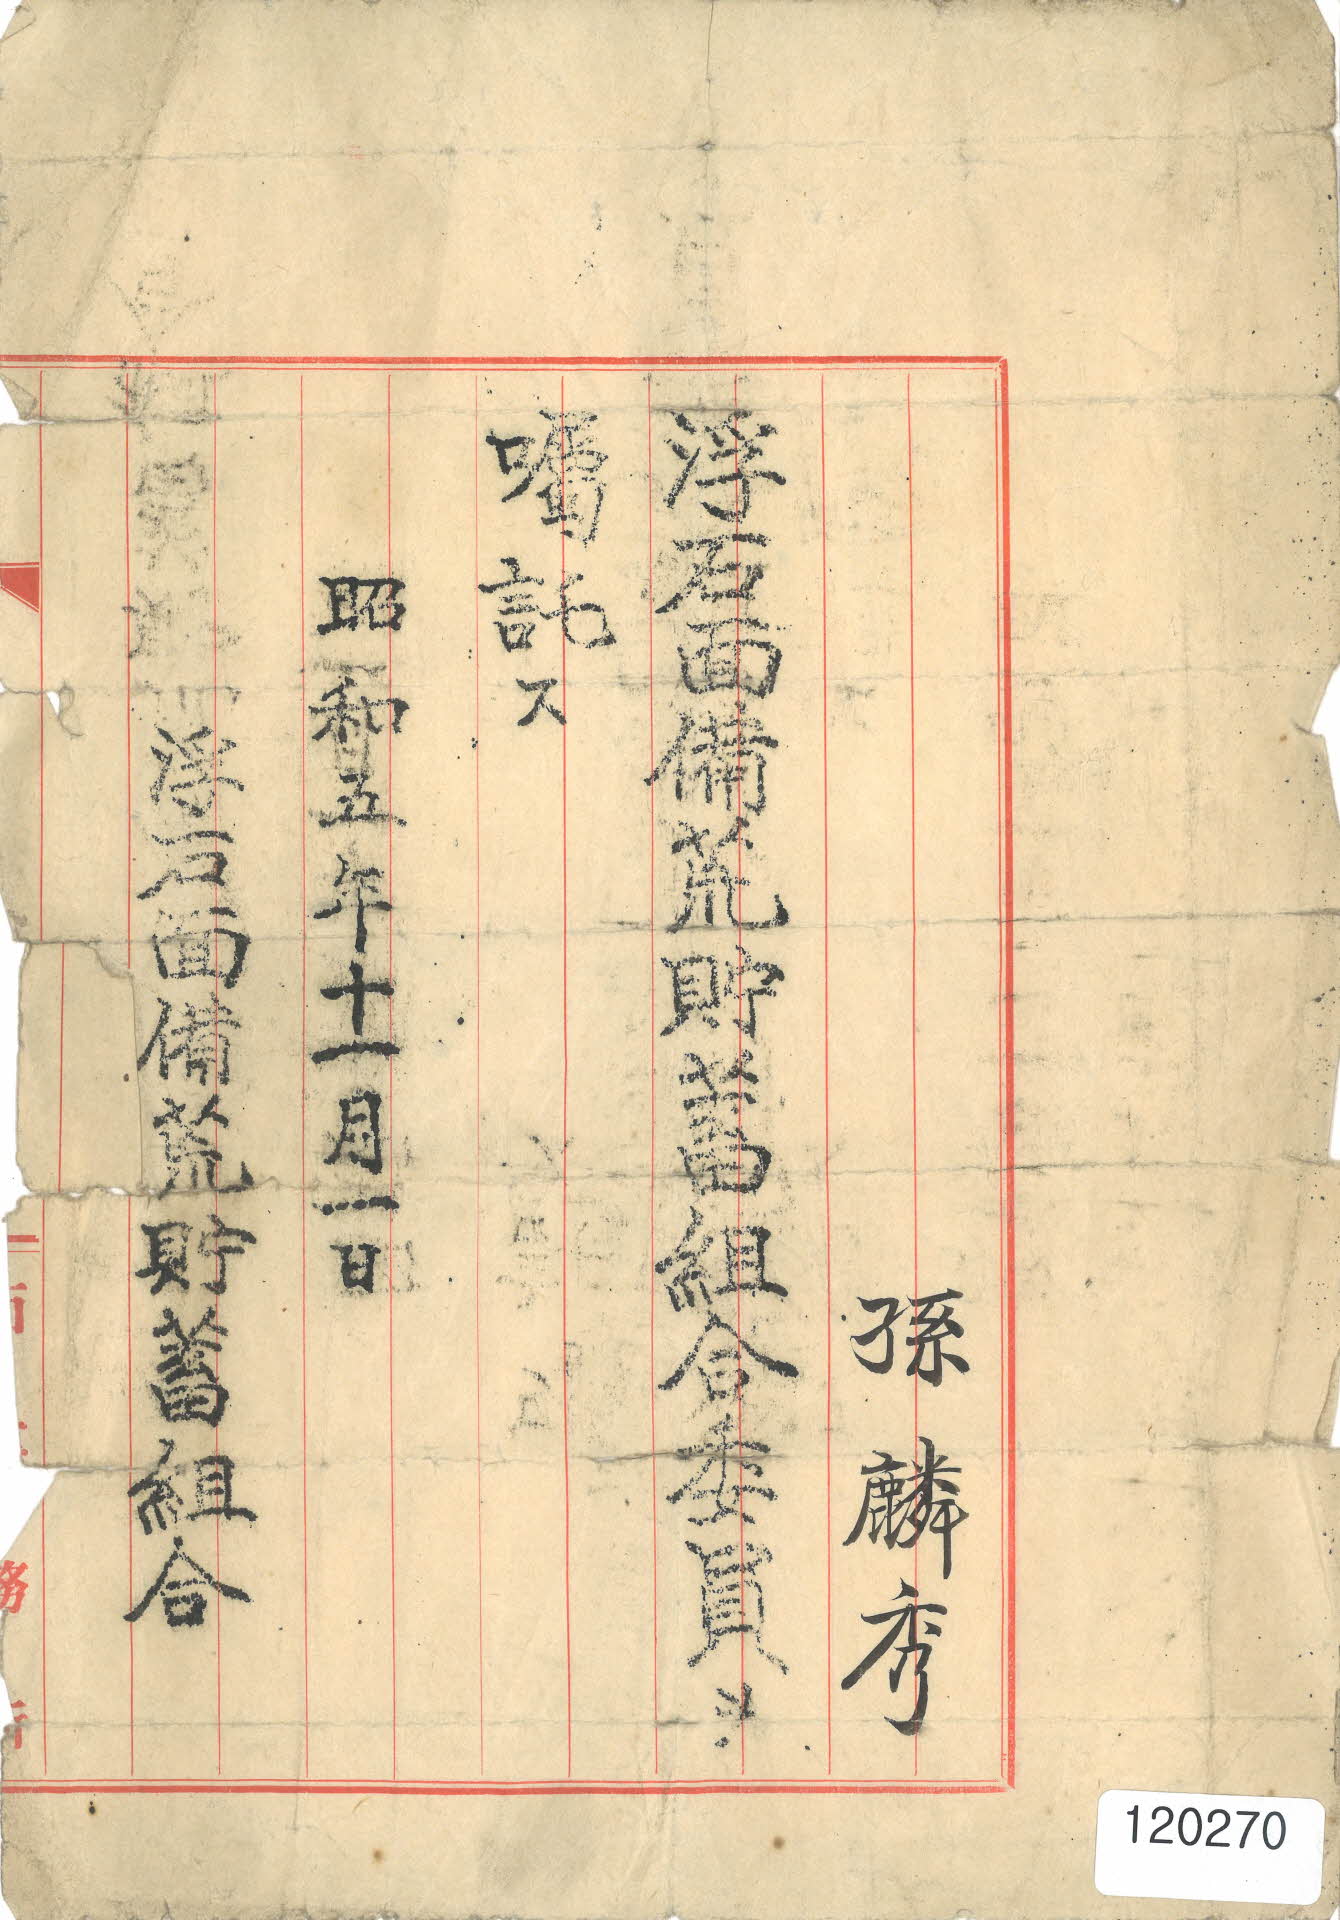 孫麟秀
浮石面備荒貯蓄組合委員ヲ
囑託ス
昭和五年十一月一日
浮石面備荒貯蓄組合
面
務
120270